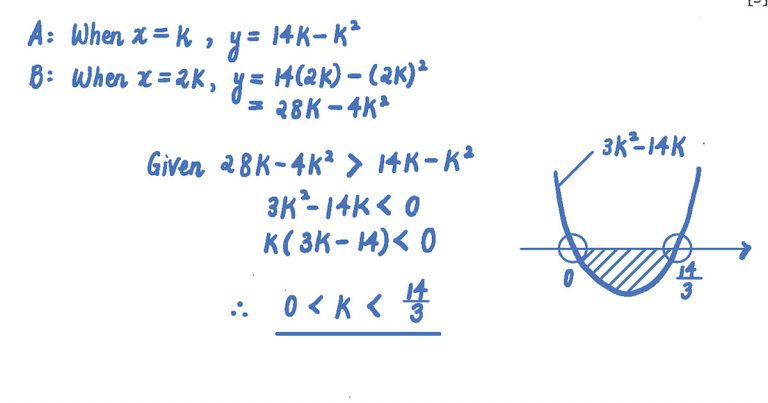 A: When x = k, y = 14k - k²
B: When x = 2k, y = 14(2k) - (2k)²
= 28k - 4k²
Given 28k - 4k² > 14k - k²
3k² - 14k < 0
k(3k - 14) < 0
∴ 0 < k < 14/3
3k² - 14k
0 14/3